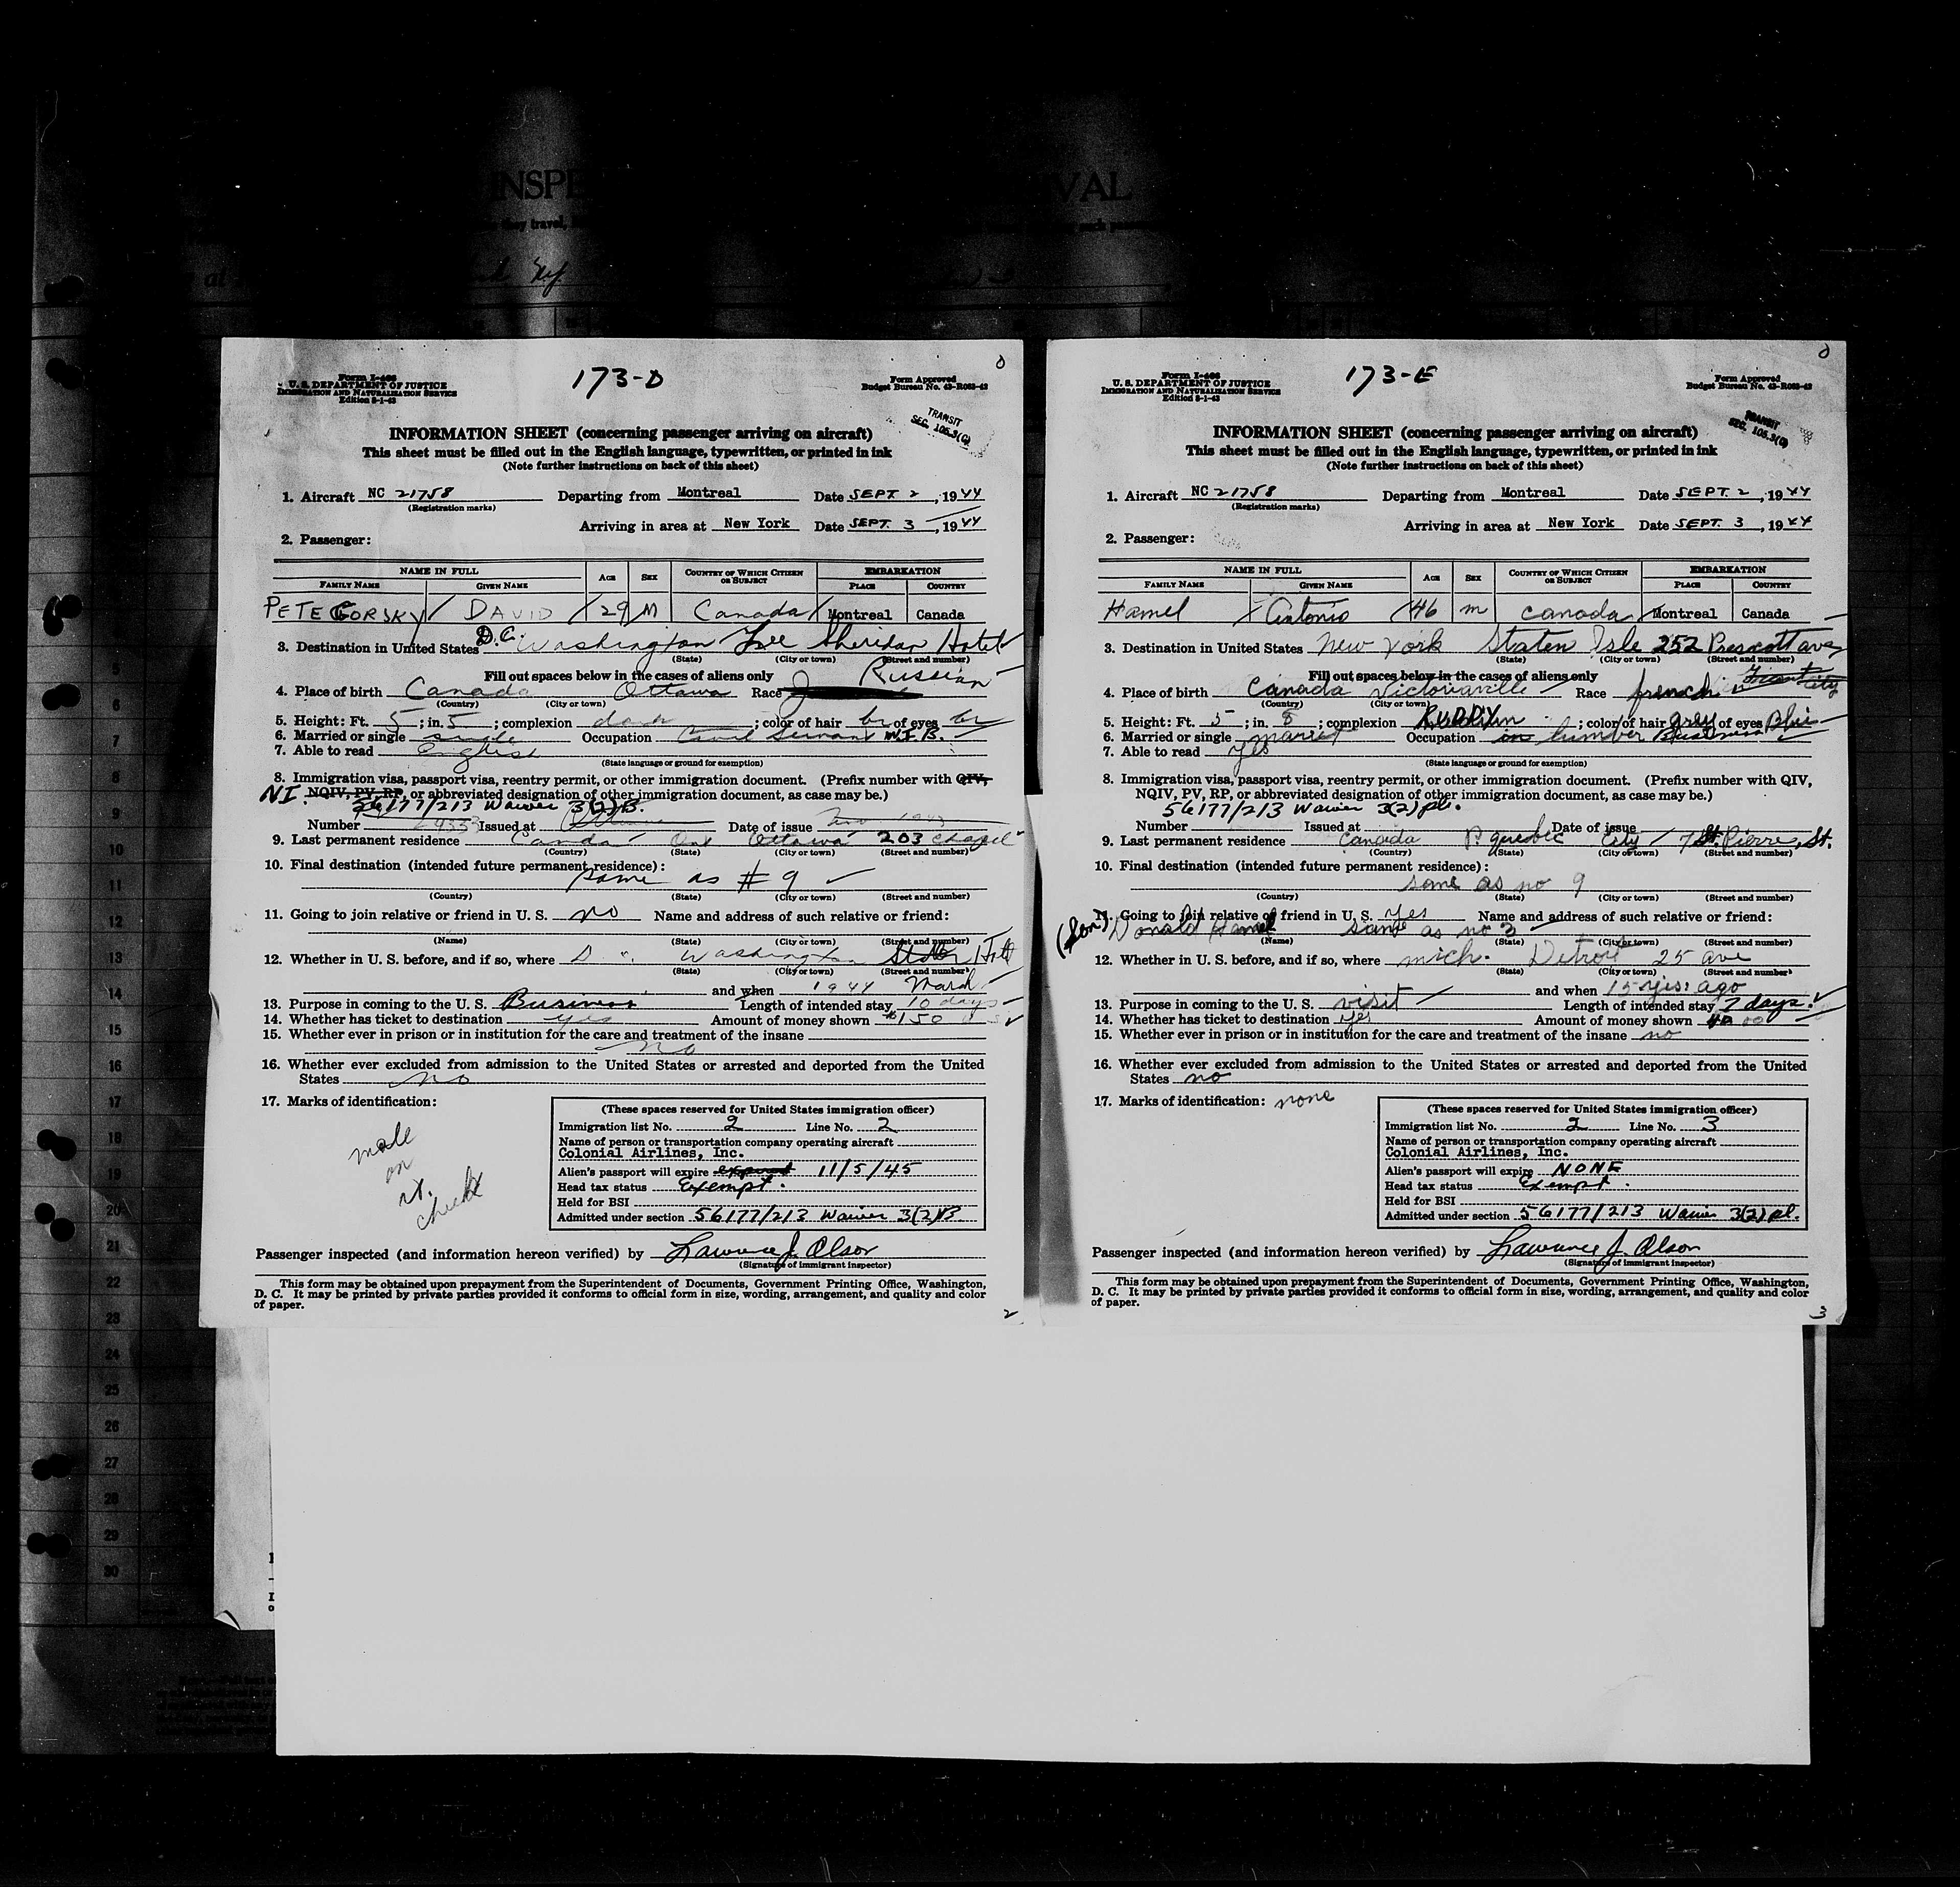 INSPE
VAL
they travel,
173-D
Form I-466
U. S. DEPARTMENT OF JUSTICE
IMMIGRATION AND NATURALIZATION SERVICE
Edition 2-1-43
Form Approved
Budget Bureau No. 43-R083-42
TRANSIT
SEC. 105.3(G)
INFORMATION SHEET (concerning passenger arriving on aircraft)
This sheet must be filled out in the English language, typewritten, or printed in ink
(Note further instructions on back of this sheet)
1. Aircraft NC 21758 Departing from Montreal Date SEPT 2, 1944
(Registration marks)
Arriving in area at New York Date SEPT. 3, 1944
2. Passenger:
NAME IN FULL AGE SEX COUNTRY OF WHICH CITIZEN OR SUBJECT EMBARKATION
FAMILY NAME GIVEN NAME PLACE COUNTRY
PETEGORSKY DAVID 29 M Canada Montreal Canada
3. Destination in United States D.C. Washington Lee Sheridan Hotel
(State) (City or town) (Street and number)
Fill out spaces below in the cases of aliens only
4. Place of birth Canada Ottawa Race Russian
(Country) (City or town)
5. Height: Ft. 5; in. 5; complexion dark; color of hair br of eyes br
6. Married or single single Occupation Civil Servant W.I.B.
7. Able to read English
(State language or ground for exemption)
8. Immigration visa, passport visa, reentry permit, or other immigration document. (Prefix number with QIV,
NI. NQIV, PV, RP, or abbreviated designation of other immigration document, as case may be.)
56177/213 Waiver 3(2)B.
Number Issued at Ottawa Date of issue Nov 1943
9. Last permanent residence Canada Ont Ottawa 203 Chapel
(Country) (State) (City or town) (Street and number)
10. Final destination (intended future permanent residence):
same as # 9
(Country) (State) (City or town) (Street and number)
11. Going to join relative or friend in U. S. no Name and address of such relative or friend:
(Name) (State) (City or town) (Street and number)
12. Whether in U. S. before, and if so, where D. C. Washington Statler Hotl
(State) (City or town) (Street and number)
and when 1944 March
13. Purpose in coming to the U. S. Business Length of intended stay 10 days
14. Whether has ticket to destination yes Amount of money shown $150 US
15. Whether ever in prison or in institution for the care and treatment of the insane
no
16. Whether ever excluded from admission to the United States or arrested and deported from the United
States no
17. Marks of identification:
mole
on
rt.
cheek
(These spaces reserved for United States immigration officer)
Immigration list No. 2 Line No. 2
Name of person or transportation company operating aircraft
Colonial Airlines, Inc.
Alien's passport will expire expired 11/5/45
Head tax status Exempt.
Held for BSI
Admitted under section 56177/213 Waiver 3(2)B
Passenger inspected (and information hereon verified) by Lawrence J. Olson
(Signature of immigrant inspector)
This form may be obtained upon prepayment from the Superintendent of Documents, Government Printing Office, Washington,
D. C. It may be printed by private parties provided it conforms to official form in size, wording, arrangement, and quality and color
of paper.
2
173-E
Form I-466
U. S. DEPARTMENT OF JUSTICE
IMMIGRATION AND NATURALIZATION SERVICE
Edition 2-1-43
Form Approved
Budget Bureau No. 43-R083-42
TRANSIT
SEC. 105.3(G)
INFORMATION SHEET (concerning passenger arriving on aircraft)
This sheet must be filled out in the English language, typewritten, or printed in ink
(Note further instructions on back of this sheet)
1. Aircraft NC 21758 Departing from Montreal Date SEPT. 2, 1944
(Registration marks)
Arriving in area at New York Date SEPT. 3, 1944
2. Passenger:
NAME IN FULL AGE SEX COUNTRY OF WHICH CITIZEN OR SUBJECT EMBARKATION
FAMILY NAME GIVEN NAME PLACE COUNTRY
Hamel Antonio 46 m canada Montreal Canada
3. Destination in United States New York Staten Isle 252 Prescott ave
(State) (City or town) (Street and number)
Fill out spaces below in the cases of aliens only
4. Place of birth Canada Victoriaville Race french
(Country) (City or town)
5. Height: Ft. 5; in. 8; complexion RUDDY; color of hair grey of eyes Blue
6. Married or single married Occupation in lumber Business
7. Able to read yes
(State language or ground for exemption)
8. Immigration visa, passport visa, reentry permit, or other immigration document. (Prefix number with QIV,
NQIV, PV, RP, or abbreviated designation of other immigration document, as case may be.)
56177/213 Waiver 3(2)pl.
Number Issued at Date of issue
9. Last permanent residence Canada P. Quebec City St. Pierre, St.
(Country) (State) (City or town) (Street and number)
10. Final destination (intended future permanent residence):
same as no 9
(Country) (State) (City or town) (Street and number)
11. Going to join relative or friend in U. S. yes Name and address of such relative or friend:
(Son) Donald Hamel same as no 3
(Name) (State) (City or town) (Street and number)
12. Whether in U. S. before, and if so, where mich. Detroit 25 ave
(State) (City or town) (Street and number)
and when 15 yrs. ago
13. Purpose in coming to the U. S. visit Length of intended stay 7 days.
14. Whether has ticket to destination yes Amount of money shown 40 00
15. Whether ever in prison or in institution for the care and treatment of the insane no
16. Whether ever excluded from admission to the United States or arrested and deported from the United
States no
17. Marks of identification: none
(These spaces reserved for United States immigration officer)
Immigration list No. 2 Line No. 3
Name of person or transportation company operating aircraft
Colonial Airlines, Inc.
Alien's passport will expire NONE
Head tax status Exempt.
Held for BSI
Admitted under section 56177/213 Waiver 3(2)pl.
Passenger inspected (and information hereon verified) by Lawrence J. Olson
(Signature of immigrant inspector)
This form may be obtained upon prepayment from the Superintendent of Documents, Government Printing Office, Washington,
D. C. It may be printed by private parties provided it conforms to official form in size, wording, arrangement, and quality and color
of paper.
3
5
6
7
8
9
10
11
12
13
14
15
16
17
18
19
20
21
22
23
24
25
26
27
28
29
30